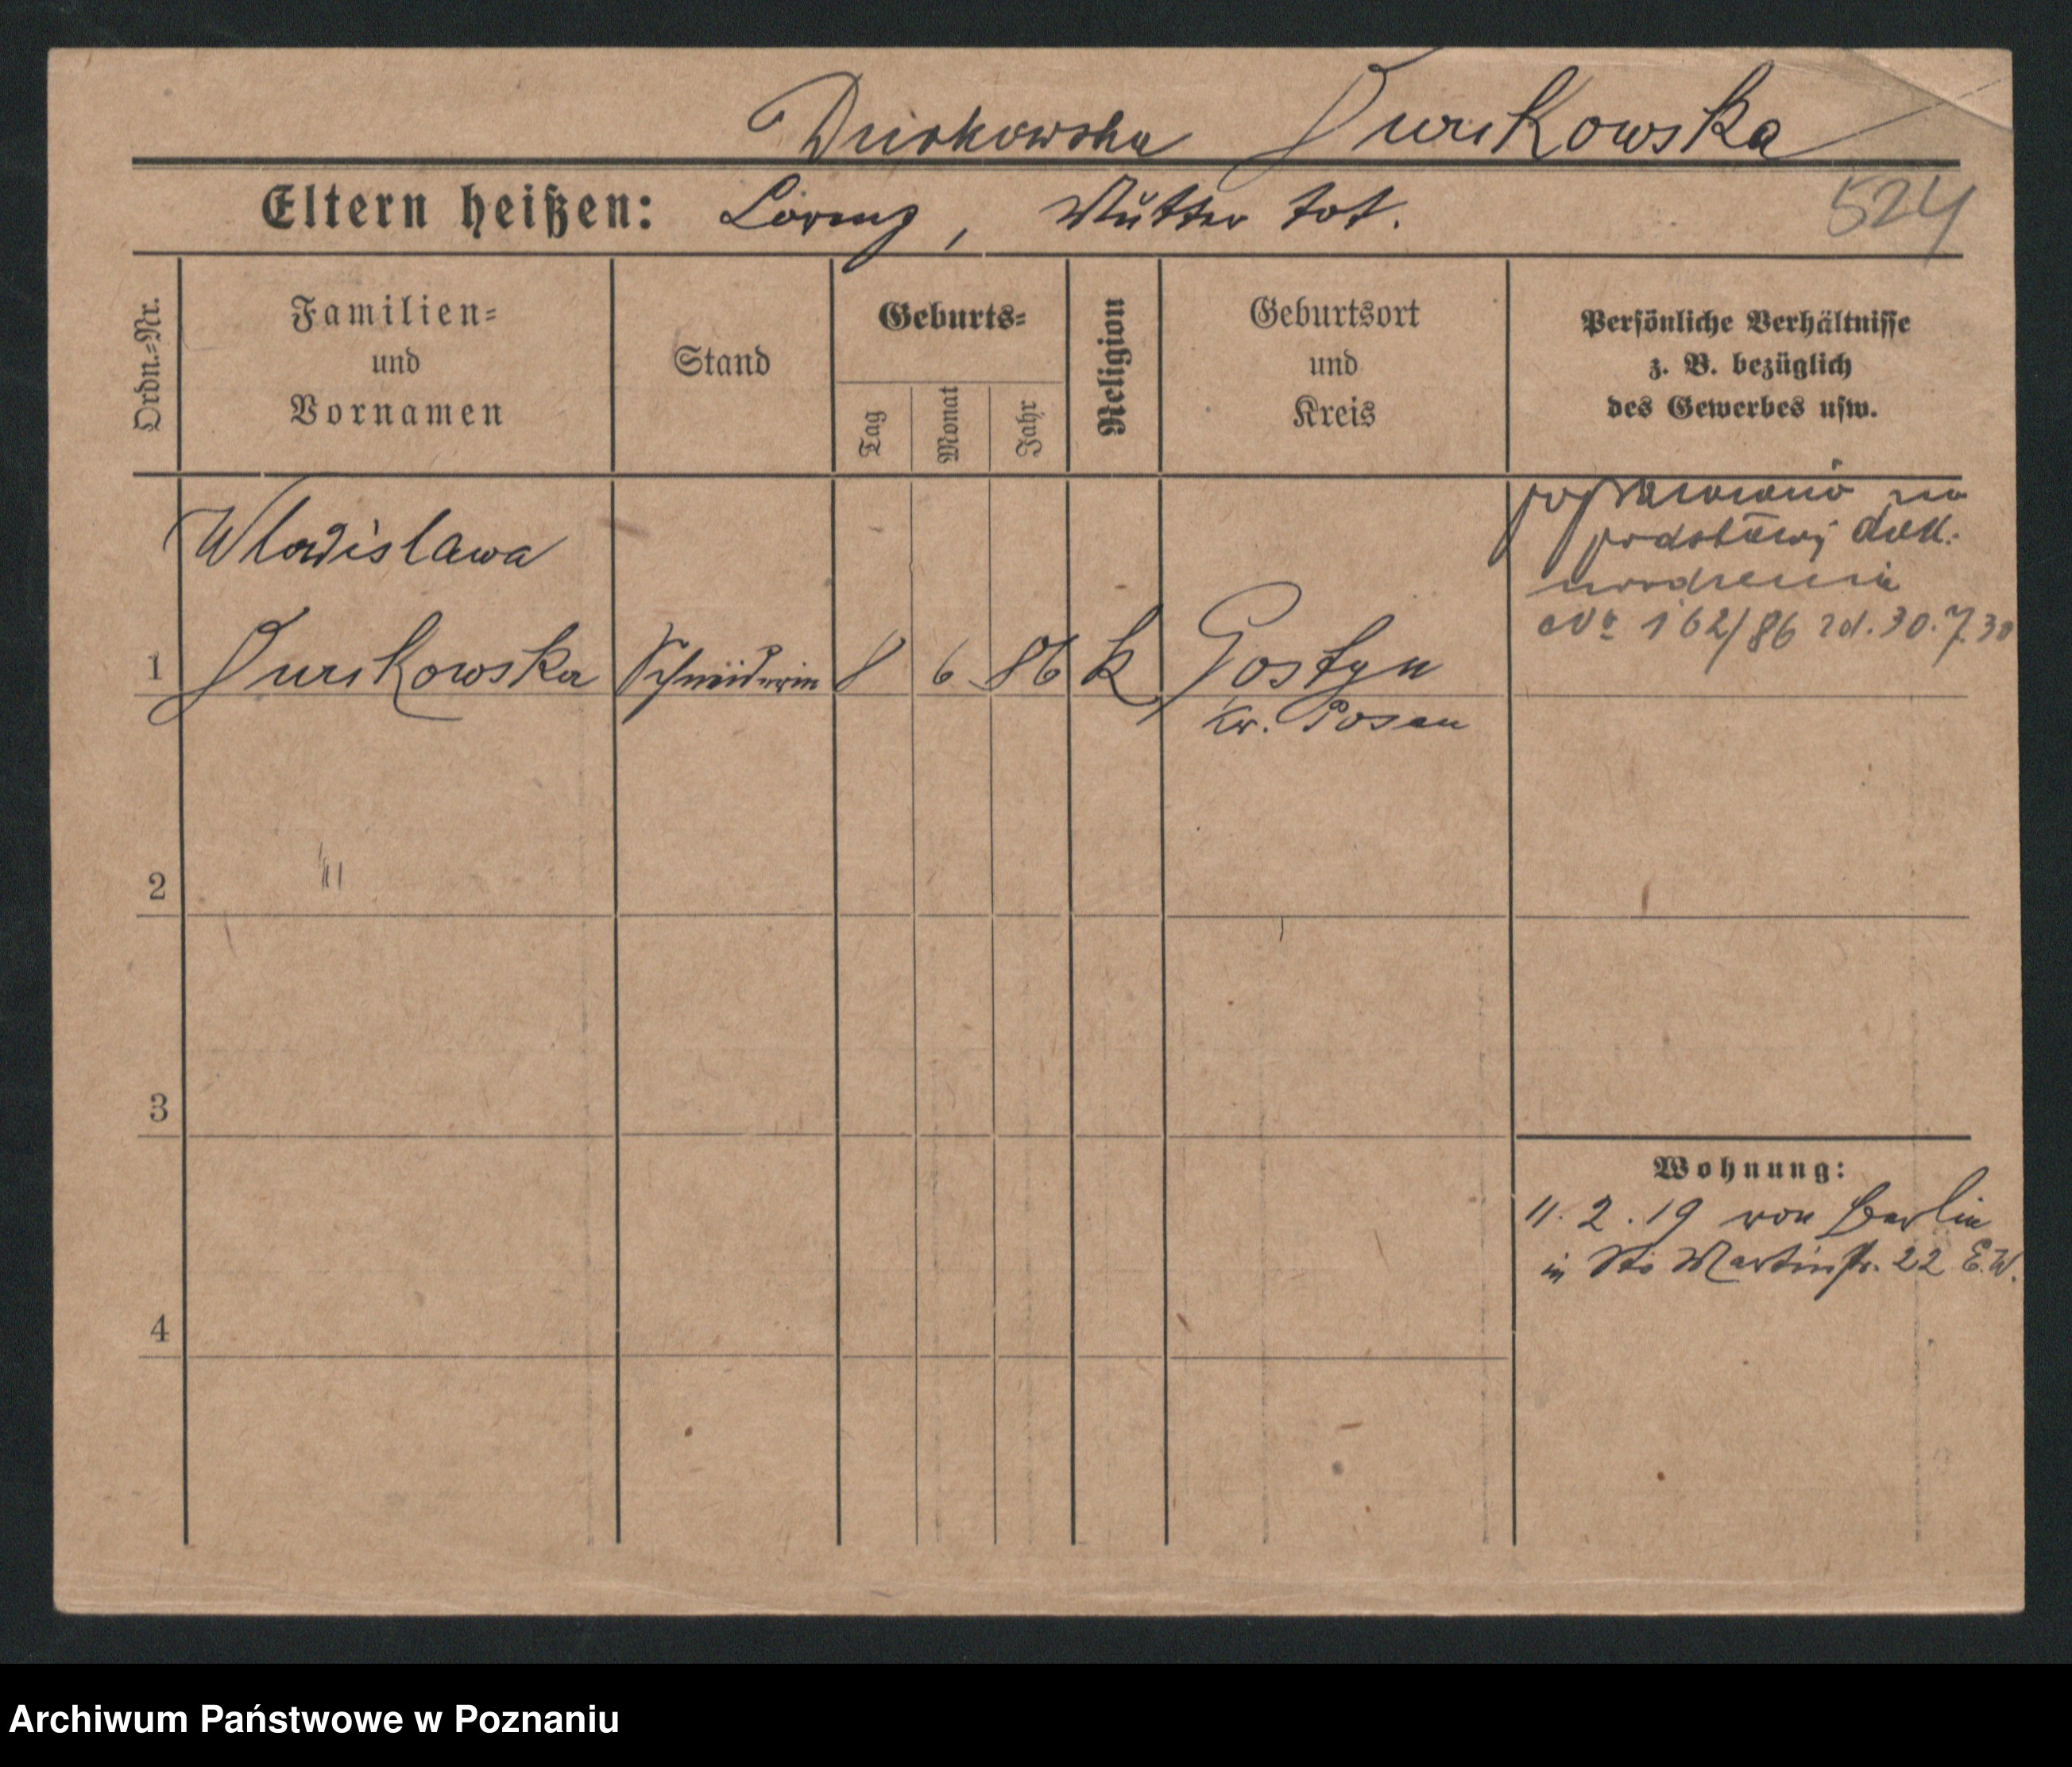 Durskowska Jurikowska
Eltern heißen: Lorenz, Mutter tot.
524
Ordn.=Nr.
Familien=
und
Vornamen
Stand
Geburts=
Tag
Monat
Jahr
Religion
Geburtsort
und
Kreis
Persönliche Verhältnisse
z. B. bezüglich
des Gewerbes usw.
poprawiono na
podstawie dok.
urodzenia
No 162/86 zd. 30.7.30
Wladislawa
1 Jurikowska Schneiderin 8 6 86 k Gostyn
Kr. Posen
2
3
4
Wohnung:
11.2.19 von Berlin
in St. Martinstr. 22 E.W.
Archiwum Państwowe w Poznaniu